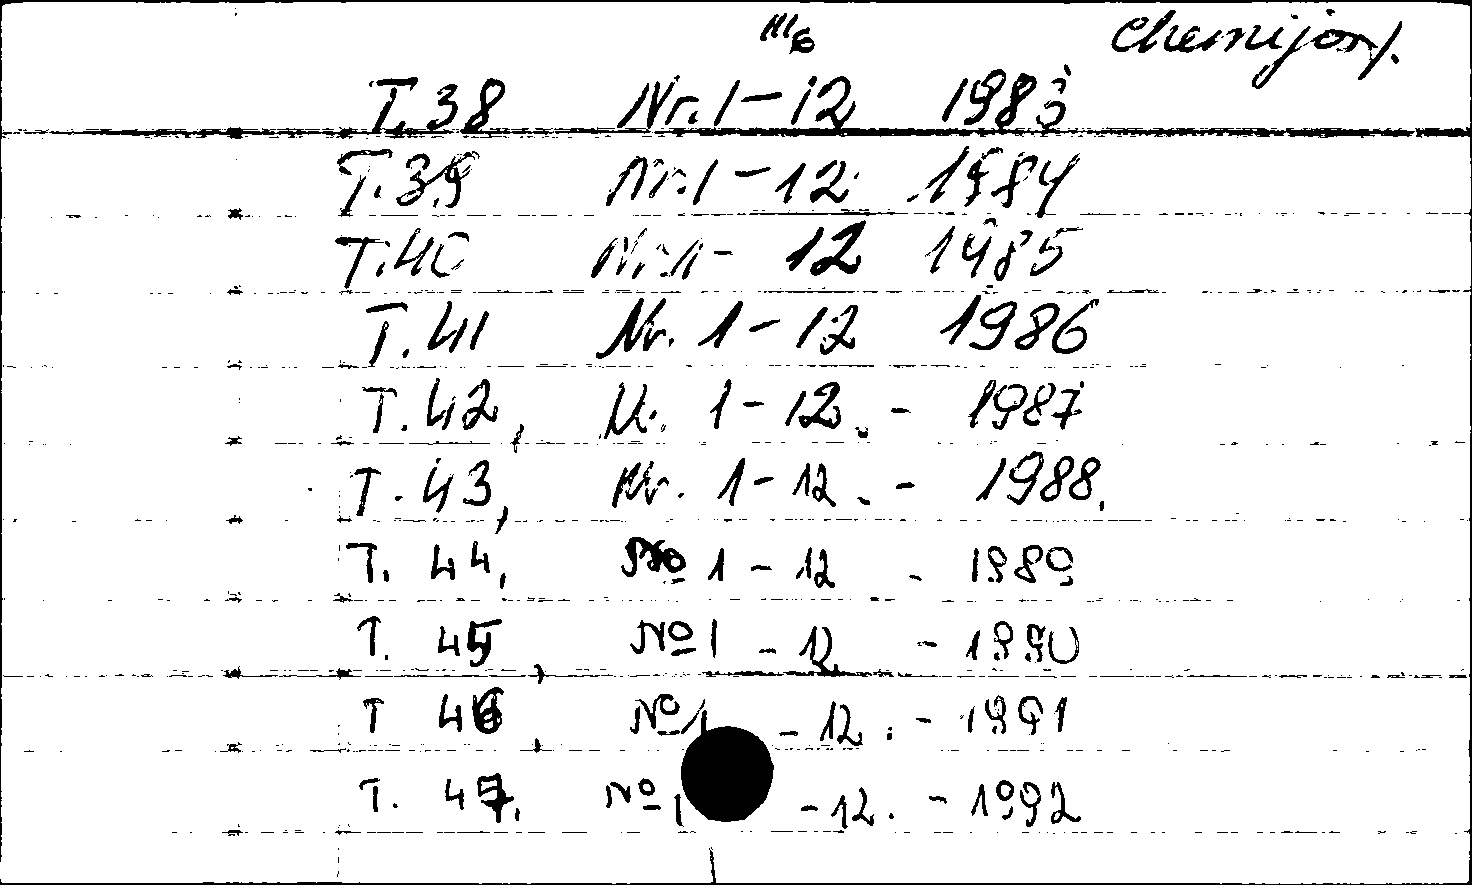 III6
T.38 Nr.1-12 1983
T.39 Nr.1-12 1984
T.40 Nr.1- 12 1985
T.41 Nr. 1-12 1986
T.42, Nr. 1-12. - 1987
T.43, Nr. 1-12. - 1988.
T. 44, № 1-12 - 1989
T. 45, № 1 - 12 - 1990
T 46, № 1 - 12. - 1991
T. 47, № 1 - 12. - 1992